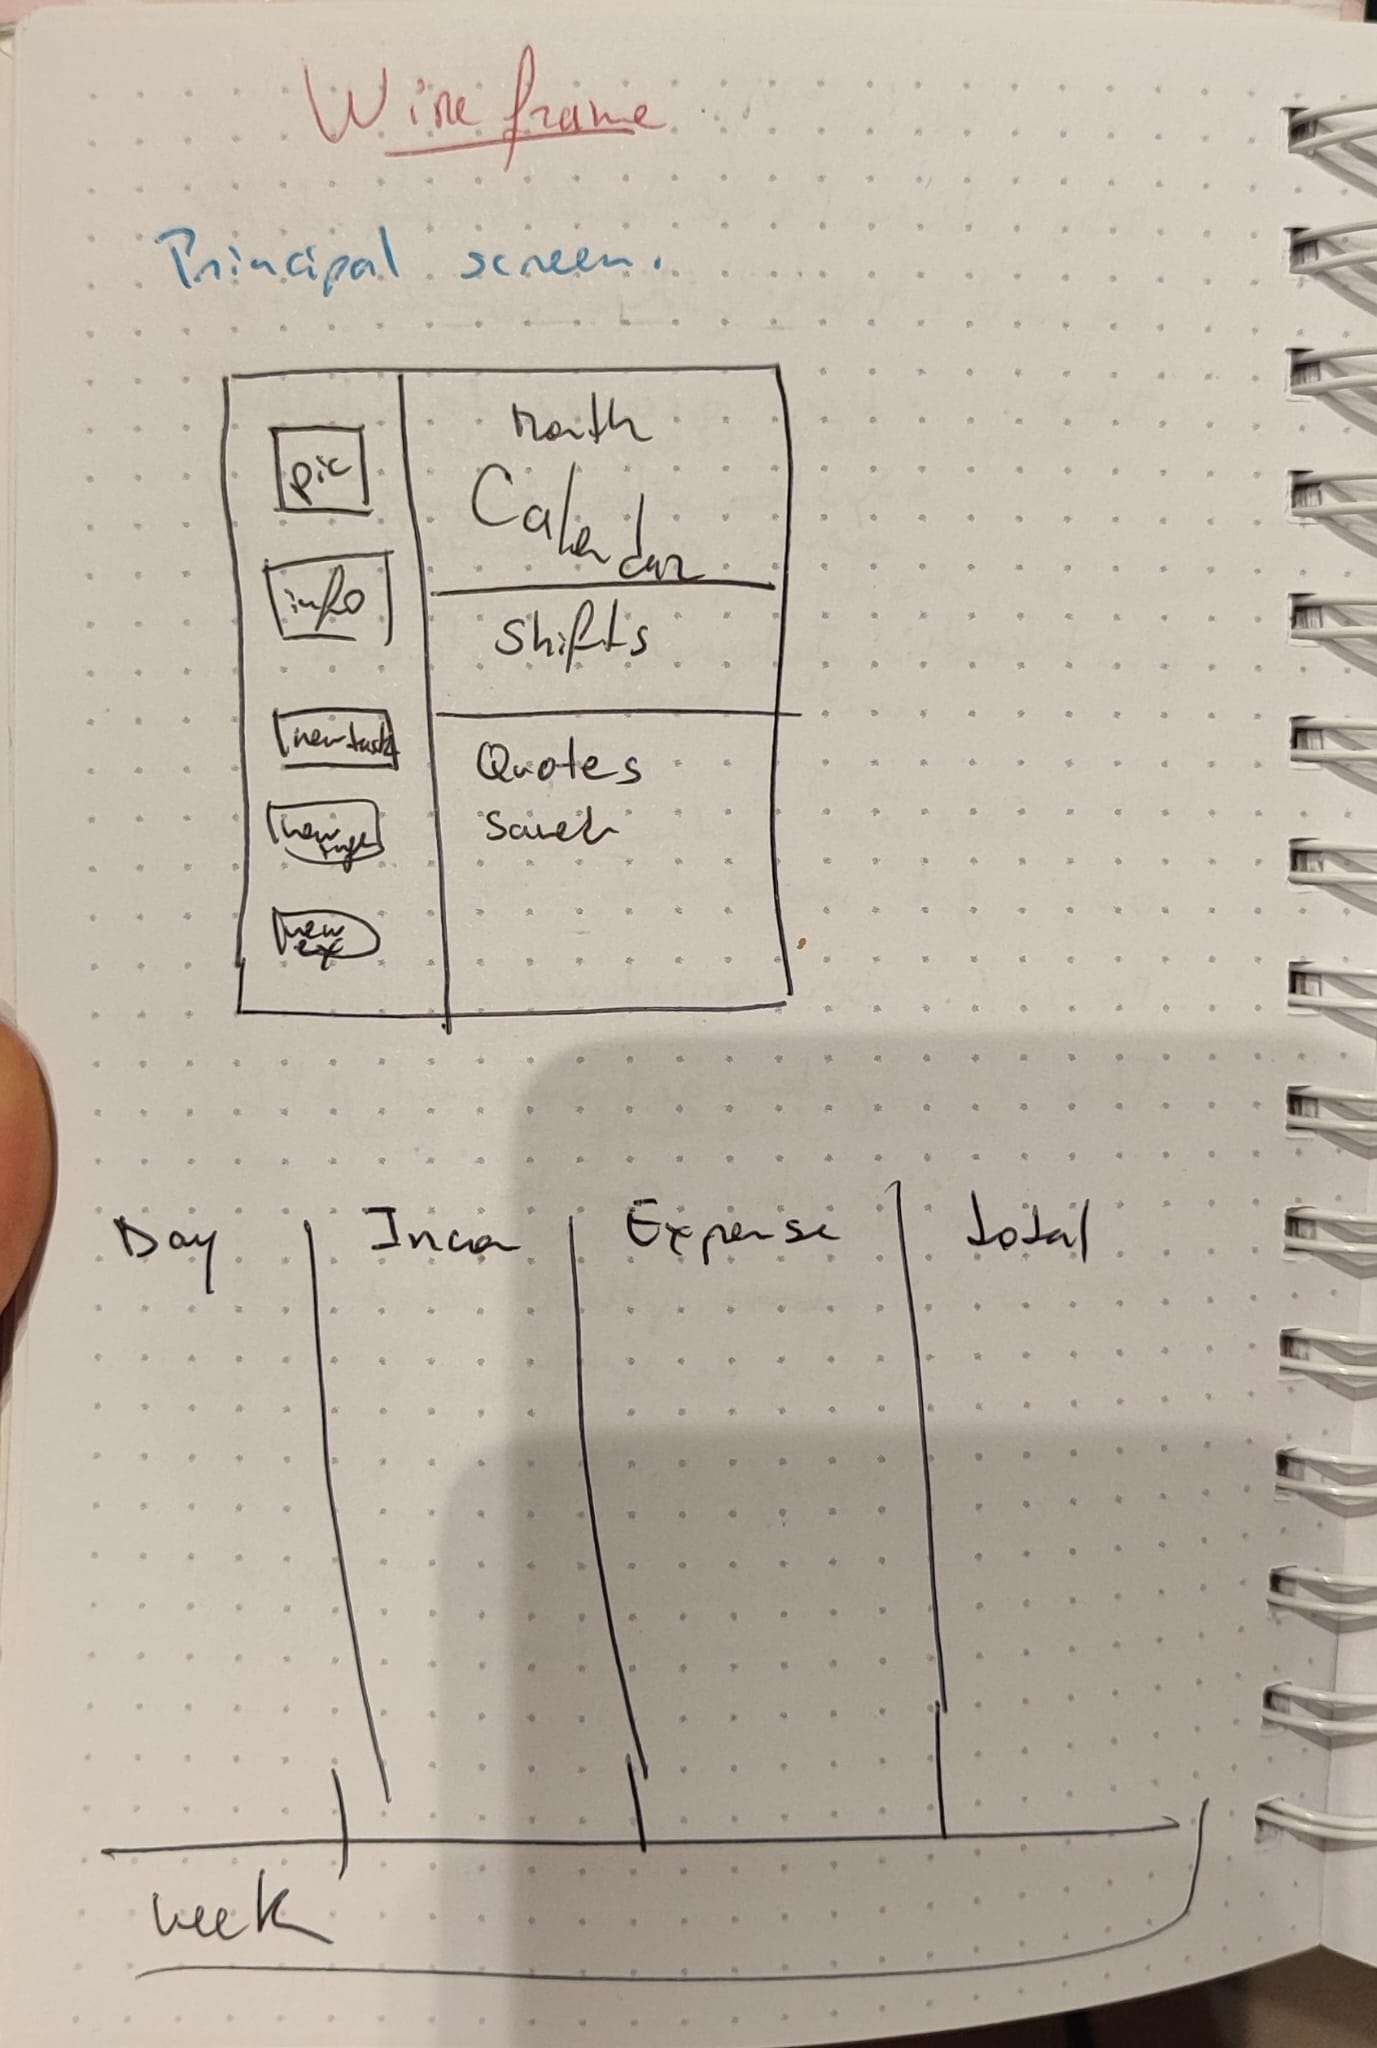 Wireframe
Principal screen.
pic
info
new task
new
new ex
Month
Calendar
Shifts
Quotes
Day
Expense
total
week